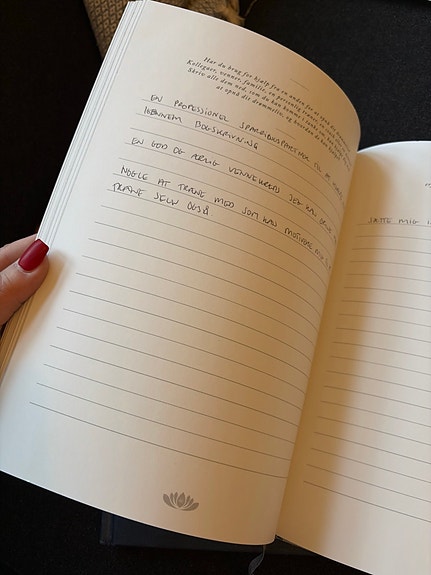 Har du brug for hjælp fra en anden for at opnå din drøm?
Kollegaer, venner, familie, en personlig træner
Skriv alle dem ned, som du kan komme i tanke om, kan hjælpe
at opnå dit drømmeliv, og hvordan de kan
EN PROFESSIONEL SPARRINGSPARTNER TIL AT
IGENNEM BOGSKRIVNING
EN GOD OG ÆRLIG VENNEKREDS SOM KAN
NOGLE AT TRÆNE MED SOM KAN MOTIVERE MIG TIL
TRÆNE SELV OGSÅ
SÆTTE MIG